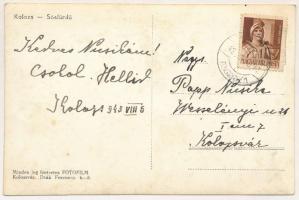 Kolozs – Sósfürdő
Kedves Nusikám!
Csókol. Hellid
Kolozs 943 VIII 5
Nagys.
Papp Nusika
Wesselényi u 26
I em 7
Kolozsvár
Minden jog fentartva FOTOFILM
Kolozsvár, Deák Ferenc-u.